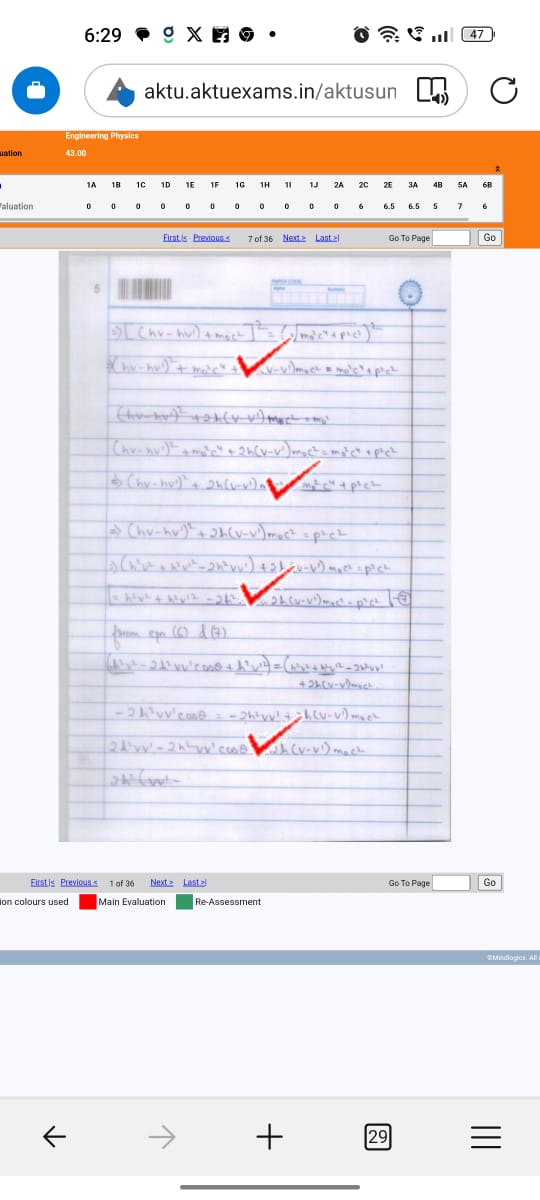 6:29
47
aktu.aktuexams.in/aktusun
Engineering Physics
uation 43.00
1A 1B 1C 1D 1E 1F 1G 1H 1I 1J 2A 2C 2E 3A 4B 5A 6B
Valuation 0 0 0 0 0 0 0 0 0 0 0 6 6.5 6.5 5 7 6
First|< Previous < 7 of 36 Next > Last >| Go To Page Go
5
⇒[(hν-hν') + m₀c²]² = (√m₀²c⁴ + p²c²)²
(hν-hν')² + m₀²c⁴ + ν-ν')m₀c² = m₀²c⁴ + p²c²
(hν-hν')² + 2h(ν-ν')m₀c² + m₀²
(hν-hν')² + m₀²c⁴ + 2h(ν-ν')m₀c² = m₀²c⁴ + p²c²
⇒ (hν-hν')² + 2h(ν-ν')m m₀²c⁴ + p²c²
⇒ (hν-hν')² + 2h(ν-ν')m₀c² = p²c²
⇒ (h²ν² + h²ν'² - 2h²νν') + 2h(ν-ν') m₀c² = p²c²
= h²ν² + h²ν'² - 2h² 2h(ν-ν')m₀c² = p²c² -⑦
from eqn (6) & (7)
(h²ν² - 2h²νν'cosθ + h²ν'²) = (h²ν² + h²ν'² - 2h²νν'
+ 2h(ν-ν')m₀c²
-2h²νν'cosθ = -2h²νν' + 2h(ν-ν')m₀c²
2h²νν' - 2h²νν'cosθ 2h(ν-ν')m₀c²
2h²(νν'-
First|< Previous < 1 of 36 Next > Last >| Go To Page Go
ion colours used Main Evaluation Re-Assessment
©Mindlogicx. All
29